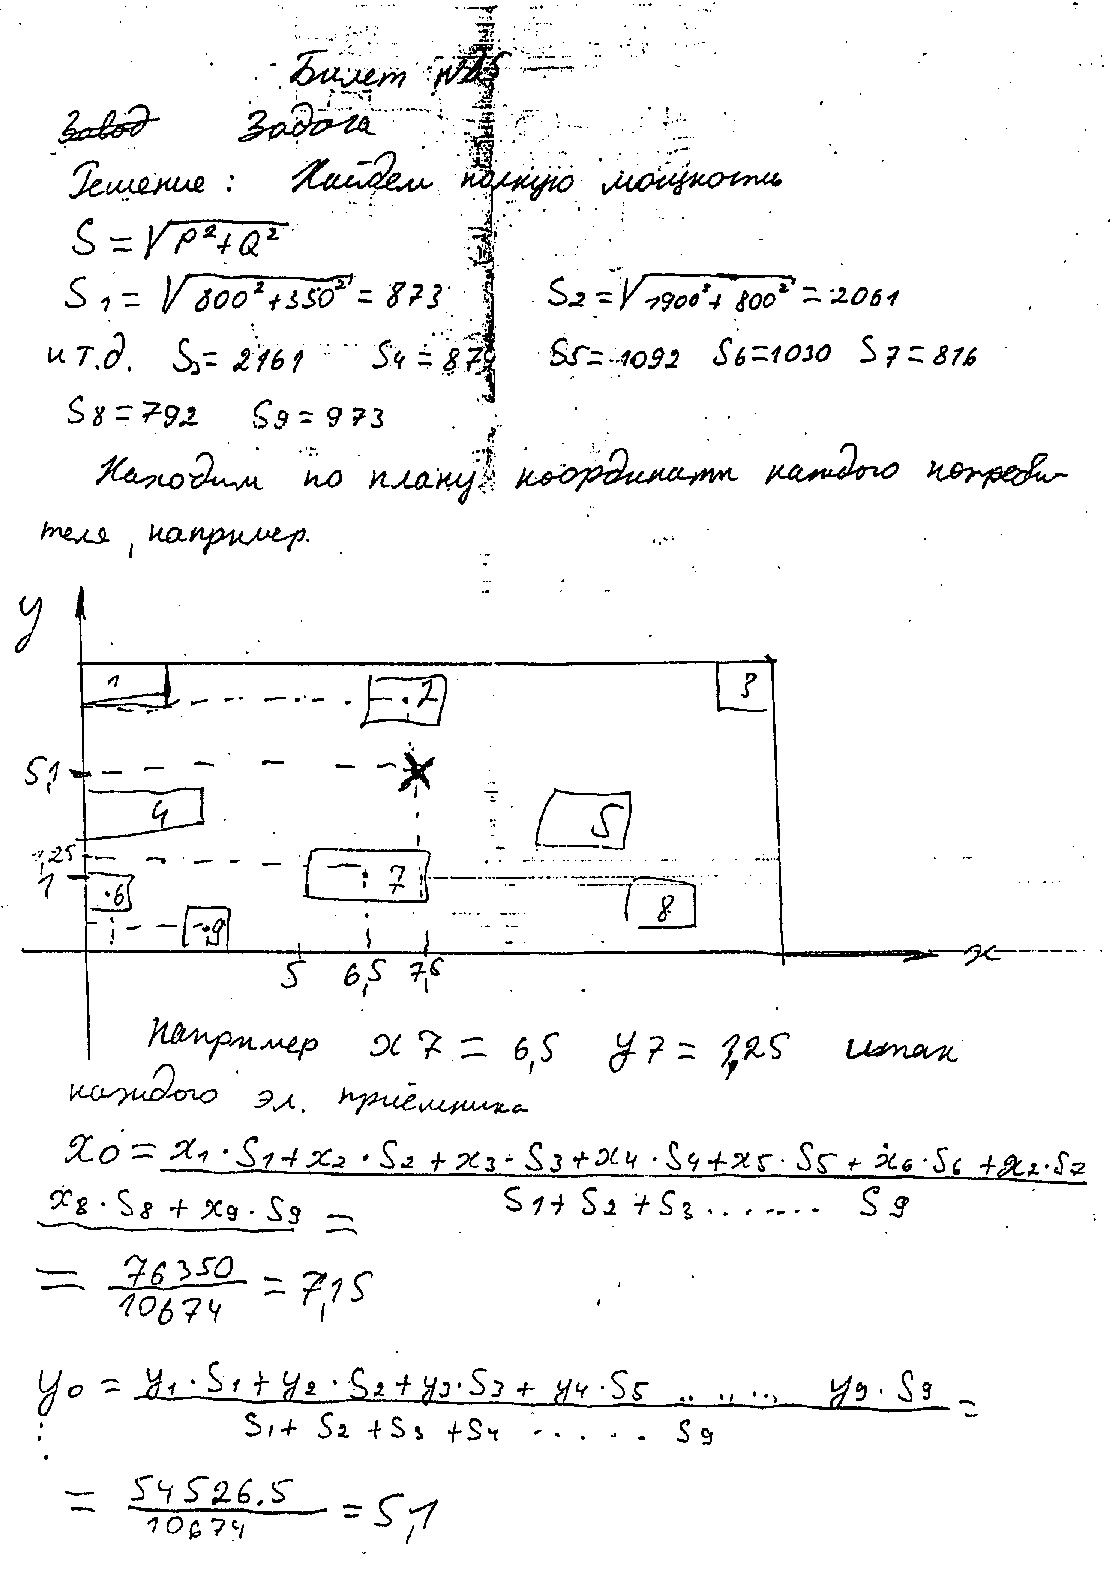 Билет №25
Завод Задача
Решение: Найдем полную мощность
S = √P²+Q²
S1 = √800²+350² = 873 S2 = √1900²+800² = 2061
и т.д. S3 = 2161 S4 = 879 S5 = 1092 S6 = 1030 S7 = 816
S8 = 792 S9 = 973
Находим по плану координаты каждого потреби-
теля, например.
y
1 2 3
5,1
4 5
,25
1 6 7 8
9
5 6,5 7,5 x
Например x7 = 6,5 y7 = 1,25 и так
каждого эл. приёмника
x0 = x1·S1+x2·S2+x3·S3+x4·S4+x5·S5+x6·S6+x2·S7
x8·S8+x9·S9 = S1+S2+S3....... S9
= 76350/10674 = 7,15
y0 = y1·S1+y2·S2+y3·S3+y4·S5 ........ y9·S9 =
S1+S2+S3+S4 ...... S9
= 54526.5/10674 = 5,1